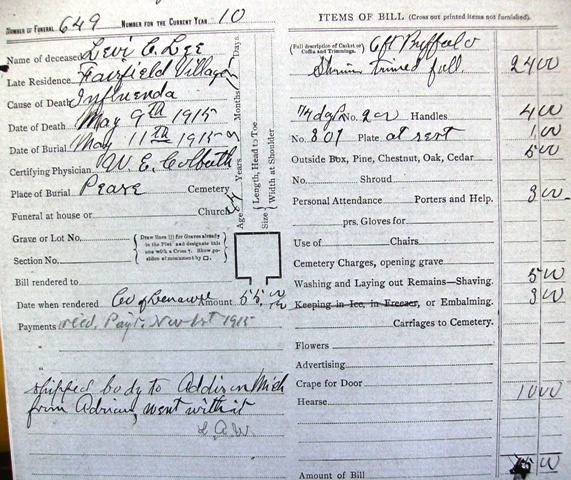 NUMBER OF FUNERAL 649 NUMBER FOR THE CURRENT YEAR 10
Name of deceased Levi C. Lee
Late Residence Fairfield Village
Cause of Death Influenda
Date of Death May 9th 1915
Date of Burial May 11th 1915
Certifying Physician W. E. Colbath
Place of Burial Pease Cemetery
Funeral at house or Church
Grave or Lot No.
Section No.
Draw lines ||| for Graves already in the Plot and designate this one with a Cross †. Show position of monument by □.
Bill rendered to
Date when rendered Co of Lenawee Amount 55 00
Payments Recd. Payt. Nov 1st 1915
"
"
shipped body to Addison Mich
from Adrian, went with it
L. A. W.
Age Years. Months. Days.
Size Length, Head to Toe
Width at Shoulder
ITEMS OF BILL (Cross out printed items not furnished).
(Full description of Casket or Coffin and Trimmings. 6ft Buffalo
trimed full. 24 00
No. 2 Handles 4 00
No. 801 Plate at rest 1 00
Outside Box, Pine, Chestnut, Oak, Cedar 5 00
No. Shroud
Personal Attendance Porters and Help. 3 00
prs. Gloves for
Use of Chairs
Cemetery Charges, opening grave
Washing and Laying out Remains—Shaving. 5 00
Keeping in Ice, in Freezer, or Embalming. 3 00
Carriages to Cemetery.
Flowers
Advertising
Crape for Door
Hearse 10 00
Amount of Bill 55 00